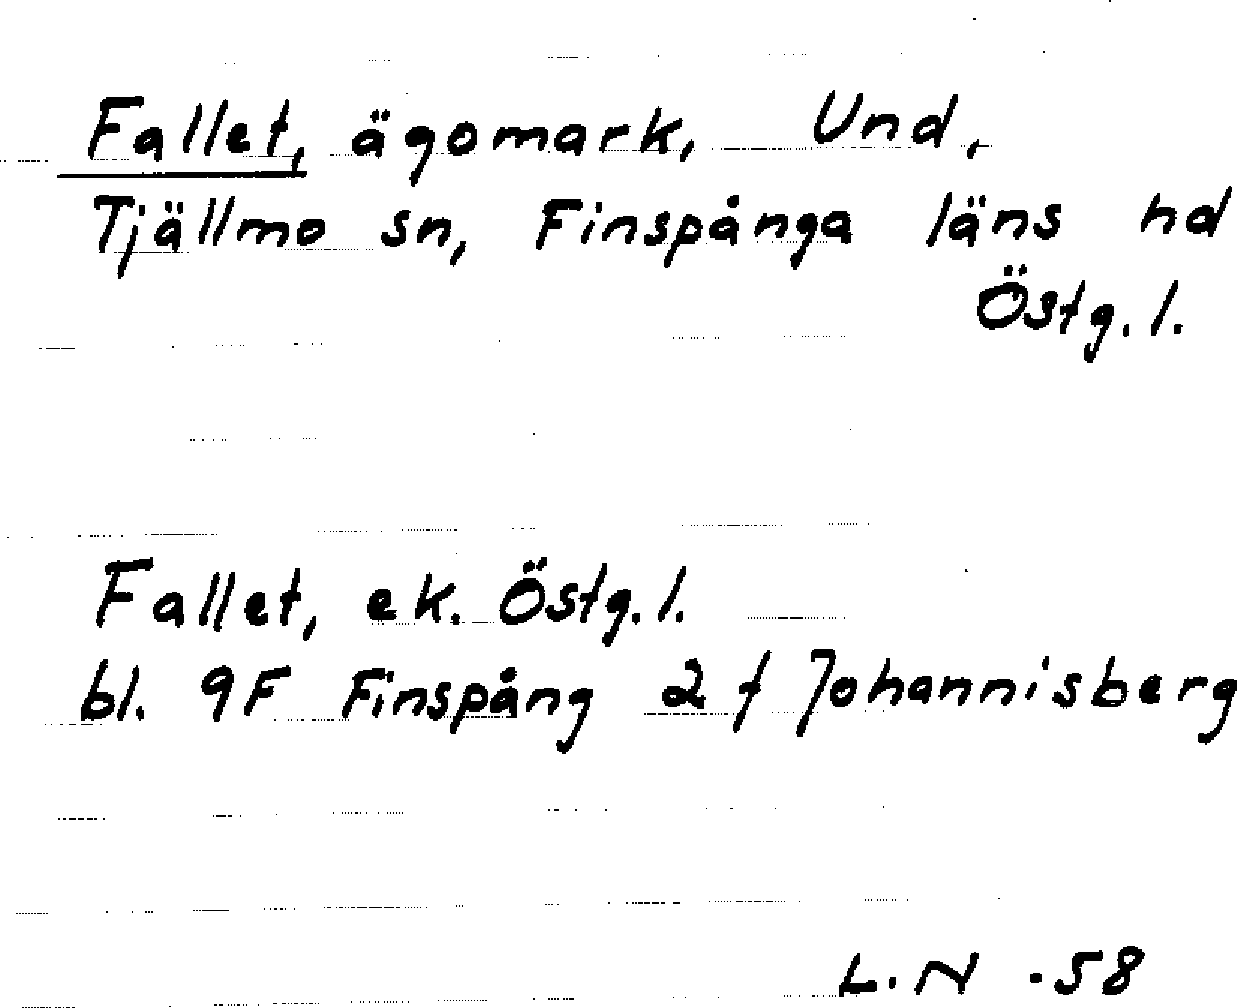 Fallet, ägomark, Und,
Tjällmo sn, Finspånga läns hd
Östg. l.
Fallet, ek. Östg. l.
bl. 9F Finspång 2 f Johannisberg
L. N . 58